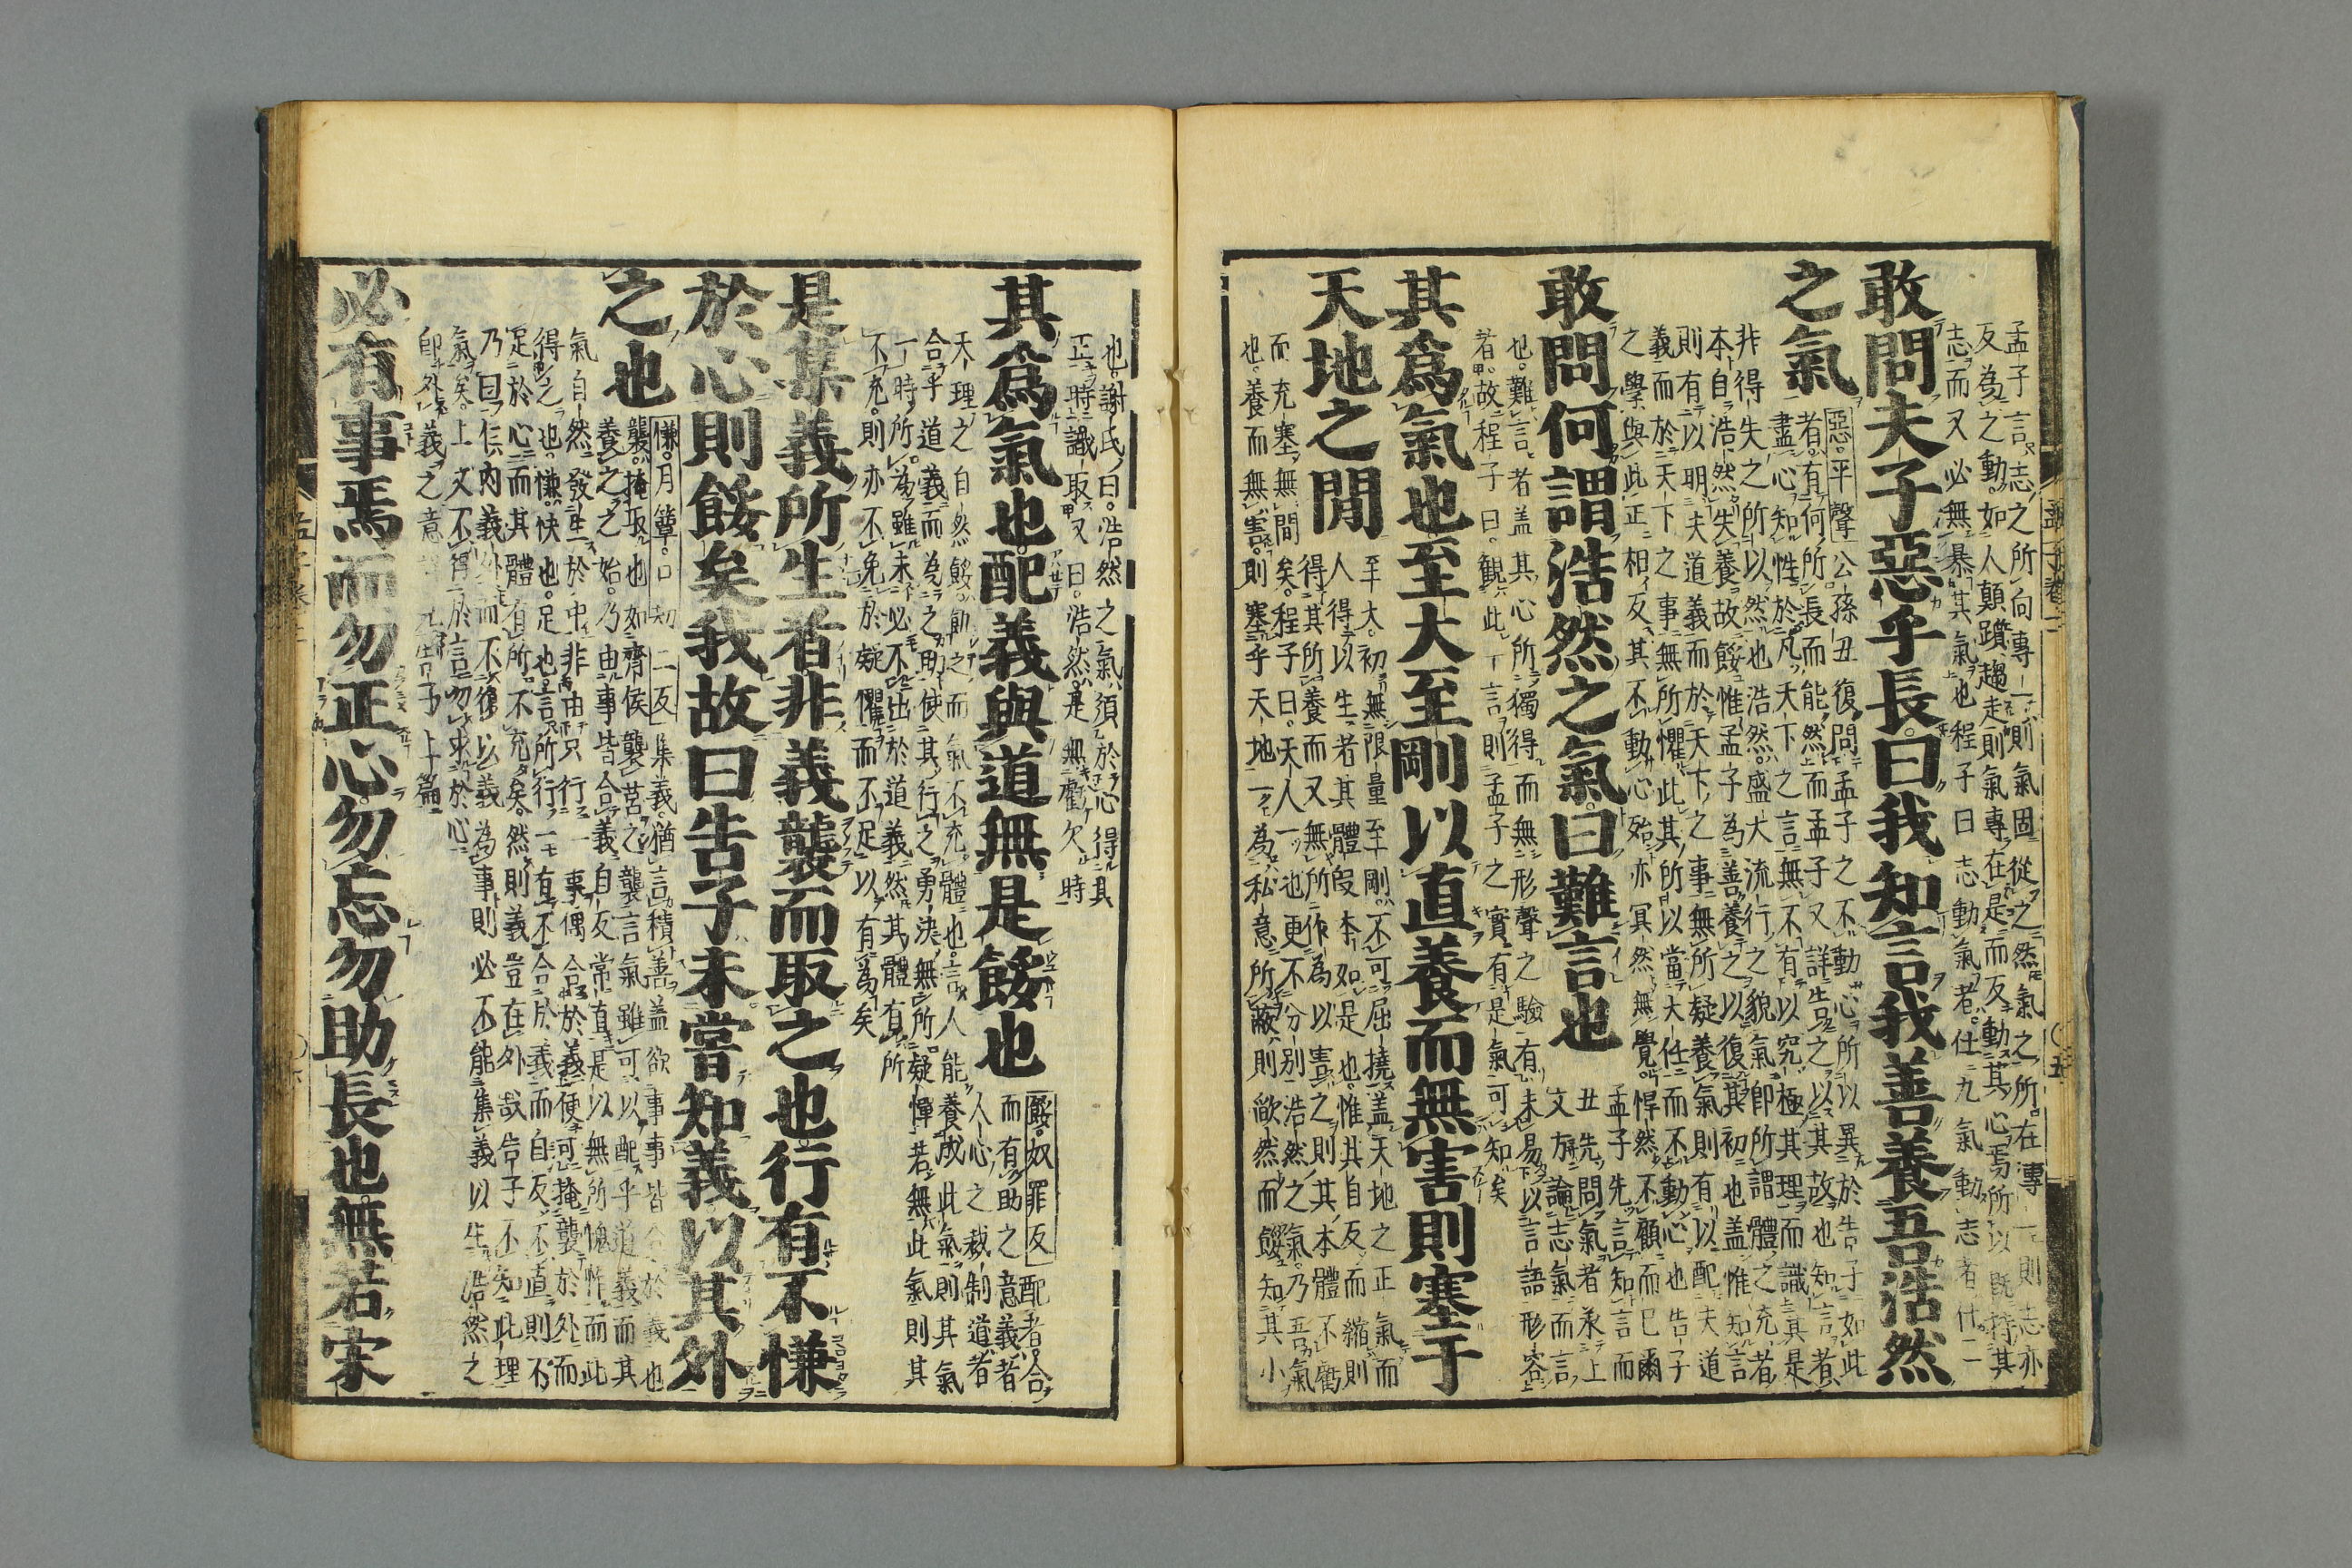 孟子言志之所向專一則氣固從之然氣之所在專一則志亦
反為之動如人顛躓趨走則氣專在是而反動其心焉所以既持其
志而又必無暴其氣也程子曰志動氣者什九氣動志者什一
敢問夫子惡乎長曰我知言我善養吾浩然
之氣
惡平聲公孫丑復問孟子之不動心所以異於告子如此
者有何所長而能然而孟子又詳告之以其故也知言者
盡心知性於凡天下之言無不有以究極其理而識其是
非得失之所以然也浩然盛大流行之貌氣即所謂體之充者
本自浩然失養故餒惟孟子為善養之以復其初也盖惟知言
則有以明夫道義而於天下之事無所疑養氣則有以配夫道
義而於天下之事無所懼此其所以當大任而不動心也告子
之學與此正相反其不動心殆亦冥然無覺悍然不顧而已爾
敢問何謂浩然之氣曰難言也
孟子先言知言而
丑先問氣者承上
文方論志氣而言
也難言者盖其心所獨得而無形聲之驗有未易以言語形容
者故程子曰觀此一言則孟子之實有是氣可知矣
其為氣也至大至剛以直養而無害則塞于
天地之閒
至大初無限量至剛不可屈撓盖天地之正氣而
人得以生者其體段本如是也惟其自反而縮則
得其所養而又無所作為以害之則其本體不虧
而充塞無間矣程子曰天人一也更不分別浩然之氣乃吾氣
也養而無害則塞乎天地一為私意所蔽則欿然而餒知其小
也謝氏曰浩然之氣須於心得其
正時識取又曰浩然是無虧欠時
其為氣也配義與道無是餒也
餒奴罪反配者合
而有助之意義者
人心之裁制道者
天理之自然餒飢之而氣不充體也言人能養成此氣則其氣
合乎道義而為之助使其行之勇決無所疑憚若無此氣則其
一時所為雖未必不出於道義然其體有所
不充則亦不免於疑懼而不足以有為矣
是集義所生者非義襲而取之也行有不慊
於心則餒矣我故曰告子未嘗知義以其外
之也
慊口簟口劫二反集義猶言積善盖欲事事皆合於義也
襲掩取也如齊侯襲莒之襲言氣雖可以配乎道義而其
養之之始乃由事皆合義自反常直是以無所愧怍而此
氣自然發生於中非由只行一事偶合於義便可掩襲於外而
得之也慊快也足也言所行一有不合於義而自反不直則不
足於心而其體有所不充矣然則義豈在外哉告子不知此理
乃曰仁內義外而不復以義為事則必不能集義以生浩然之
氣矣上文不得於言勿求於心
即外義之意詳見告子上篇
必有事焉而勿正心勿忘勿助長也無若宋